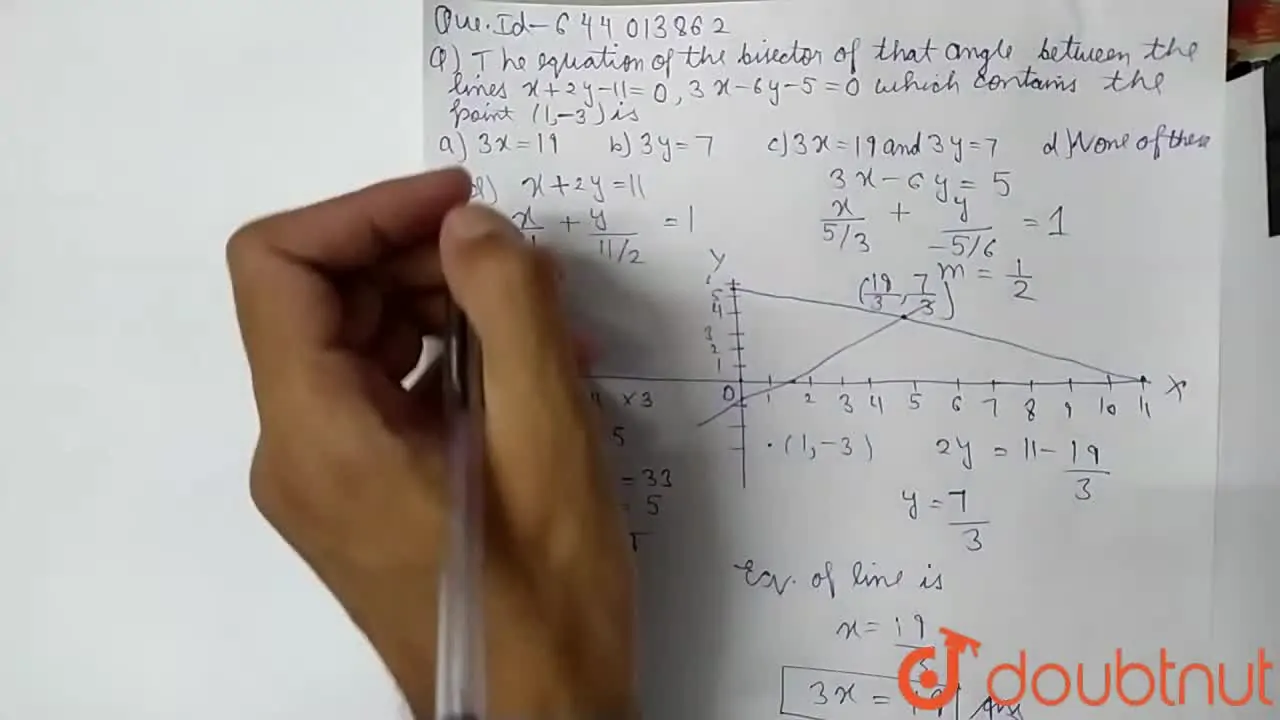 Que.Id-644013862
Q) The equation of the bisector of that angle between the
lines x+2y-11=0, 3x-6y-5=0 which contains the
point (1,-3) is
a) 3x=19 b) 3y=7 c) 3x=19 and 3y=7 d) None of these
x+2y=11
x + y/11/2 = 1
3x-6y=5
x/5/3 + y/-5/6 = 1
m = 1/2
Y
(19/3, 7/3)
5
4
3
2
1
0 1 2 3 4 5 6 7 8 9 10 11 X
4 x3
5
= 33
= 5
.(1,-3)
2y = 11-19/3
y = 7/3
Eq. of line is
x = 19/3
3x = 19 Ans
doubtnut